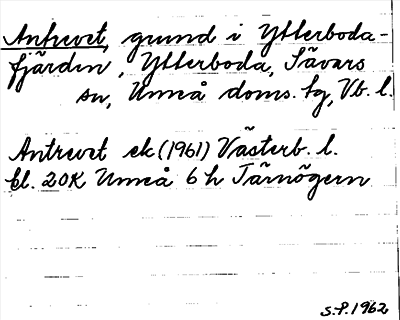 Antrevet, grund i Ytterboda-
fjärden, Ytterboda, Sävars
sn, Umeå doms. tg, Vb. l.
Antrevet ek (1961) Västerb. l.
bl. 20K Umeå 6 h Tärnögern
S.P. 1962